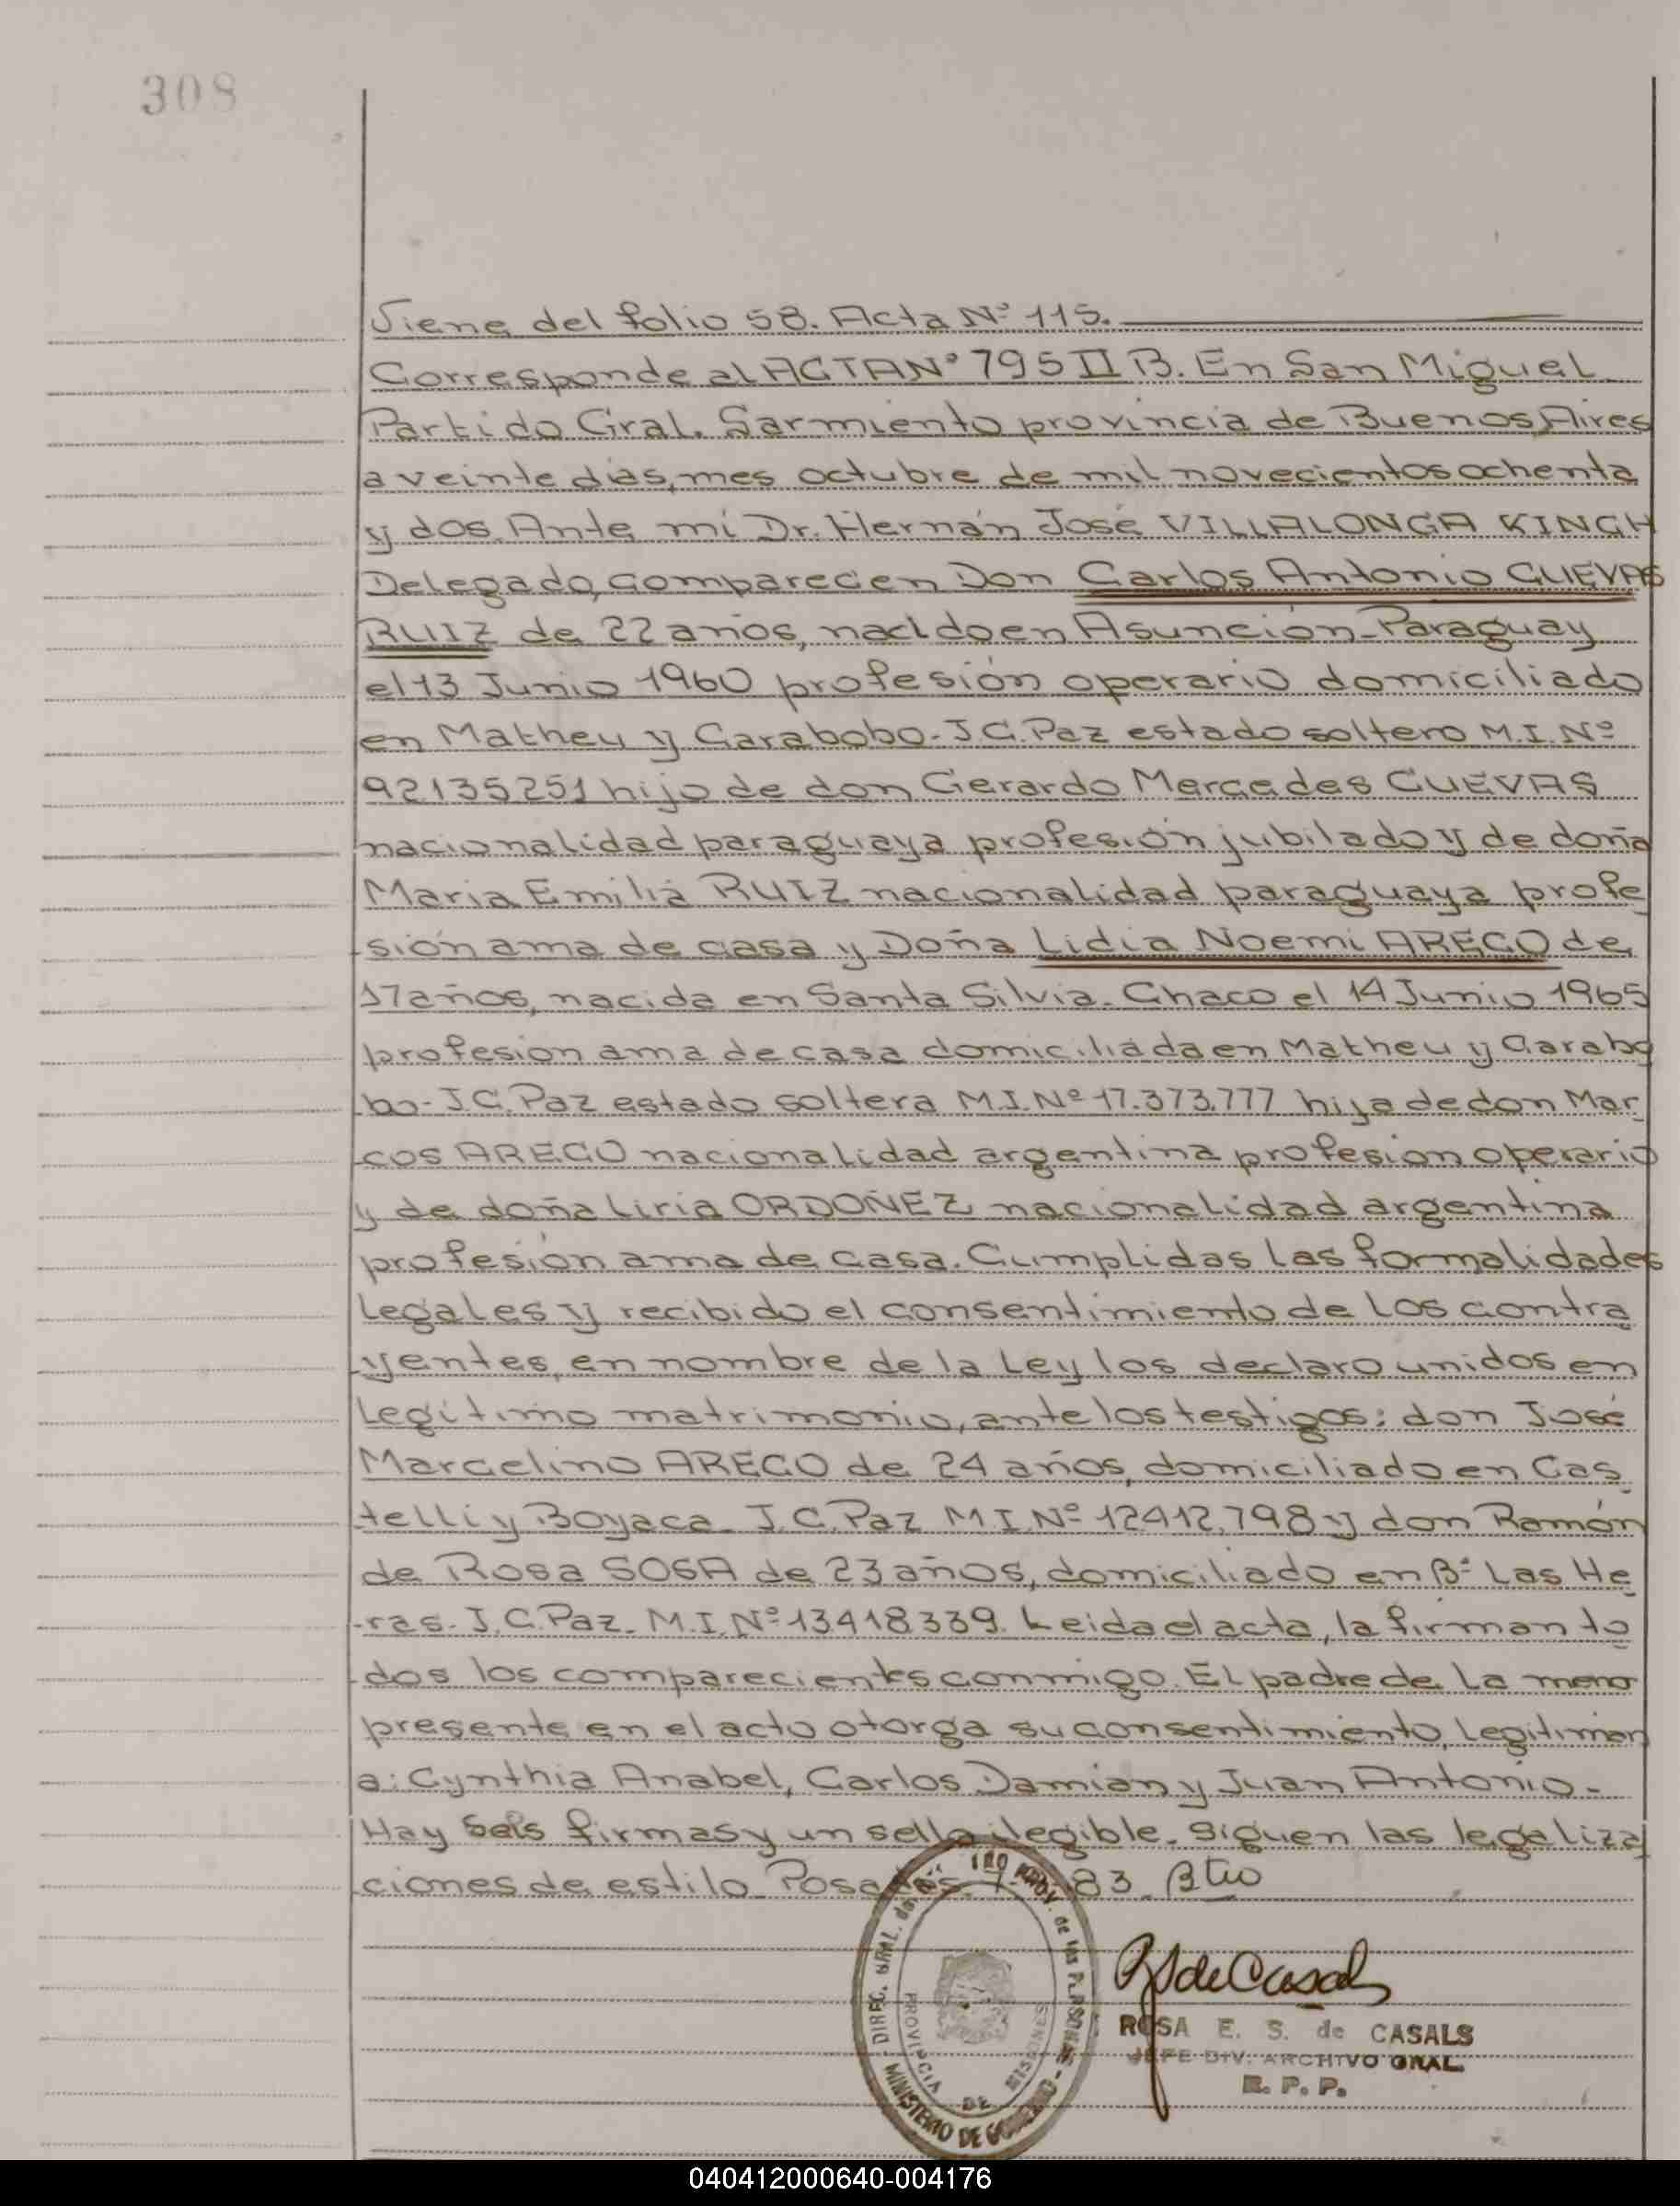 308
Viene del folio 58. Acta Nº 115.
Corresponde al ACTA Nº 795 II B. En San Miguel
Partido Gral. Sarmiento provincia de Buenos Aires
a veinte días, mes octubre de mil novecientos ochenta
y dos. Ante mí Dr. Hernán José VILLALONGA KINGH
Delegado, comparecen Don Carlos Antonio CUEVAS
RUIZ de 22 años, nacido en Asunción-Paraguay
el 13 Junio 1960 profesión operario domiciliado
en Matheu y Carabobo-J.C.Paz estado soltero M.I.Nº
92135251 hijo de don Gerardo Mercedes CUEVAS
nacionalidad paraguaya profesión jubilado y de doña
Maria Emilia RUIZ nacionalidad paraguaya profe
sión ama de casa y Doña Lidia Noemi ARECO de
17 años, nacida en Santa Silvia-Chaco el 14 Junio 1965
profesion ama de casa domiciliada en Matheu y Carabo
bo-J.C.Paz estado soltera M.I.Nº 17.373.777 hija de don Mar
cos ARECO nacionalidad argentina profesion operario
y de doña Liria ORDOÑEZ nacionalidad argentina
profesión ama de casa. Cumplidas las formalidades
legales y recibido el consentimiento de los contra
yentes, en nombre de la Ley los declaro unidos en
legítimo matrimonio, ante los testigos: don José
Marcelino ARECO de 24 años, domiciliado en Cas
telli y Boyaca-J.C.Paz M.I.Nº 12412.798 y don Ramón
de Rosa SOSA de 23 años, domiciliado en Bº Las He
ras-J.C.Paz-M.I.Nº 13418339. Leida el acta, la firman to
dos los comparecientes conmigo. El padre de la menor
presente en el acto otorga su consentimiento, legitiman
a: Cynthia Anabel, Carlos Damian y Juan Antonio-
Hay seis firmas y un sello ilegible. Siguen las legaliza
ciones de estilo. Posadas 83.
DIREC. GRAL. del REG. PROV. de las PERSONAS
MINISTERIO DE GOBIERNO
PROVINCIA DE MISIONES
RSdeCasals
ROSA E. S. de CASALS
JEFE DIV. ARCHIVO GRAL.
R. P. P.
040412000640-004176